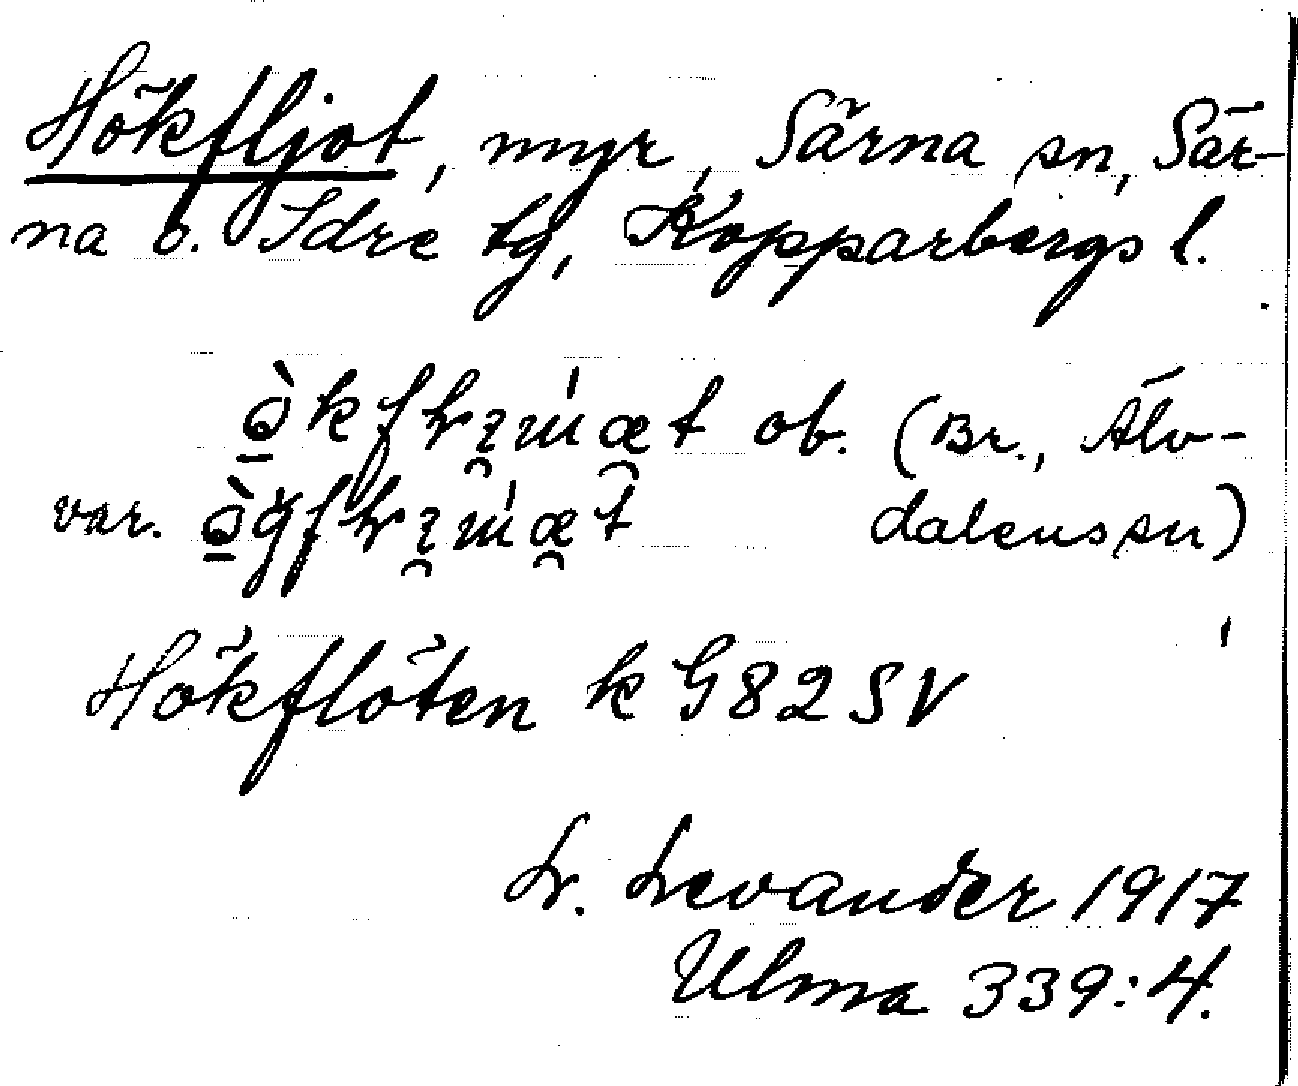 Hökfljot, myr, Särna sn, Sär-
na o. Idre tg, Kopparbergs l.
ob. (Br., Älv-
var. dalens sn)
Hökflöten k G82SV
L. Levander 1917
Ulma 339:4.